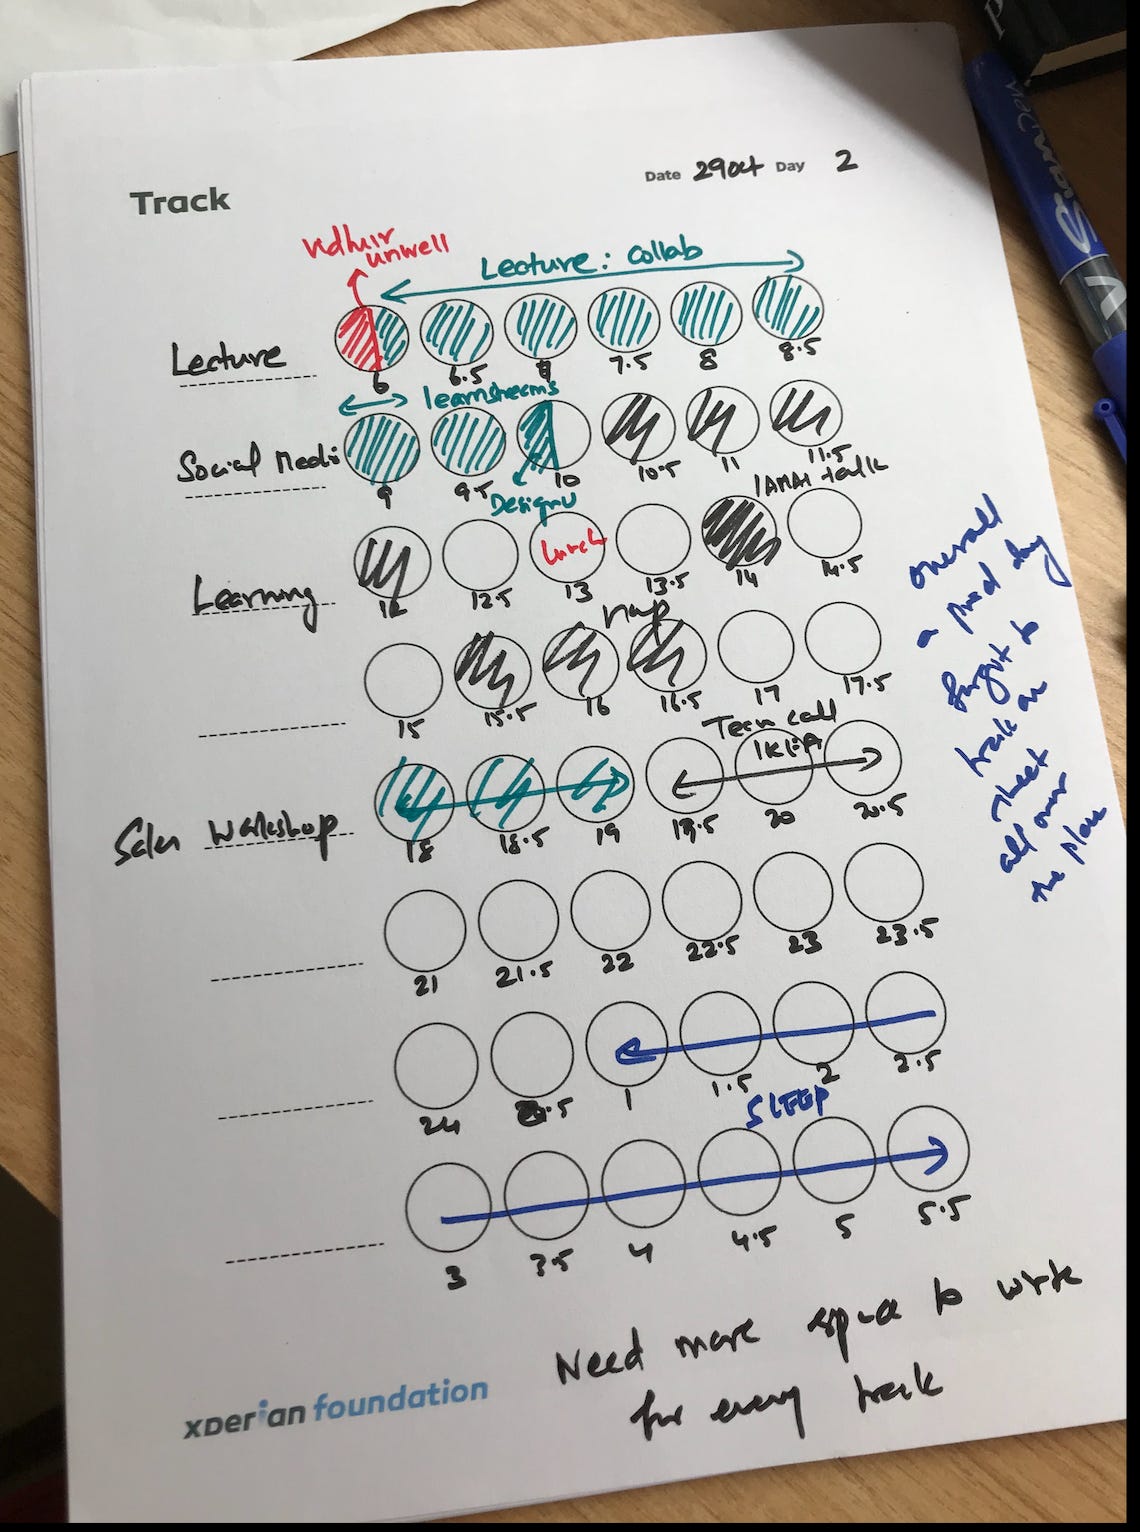 Track
Date 29 Oct Day 2
unwell
Lecture: Collab
Lecture
6 6.5 7.5 8 8.5
learnstreems
Social Medi
9 9.5 10 10.5 11 11.5
Designu
IAMAI talk
Learning
Lunch
12 12.5 13 13.5 14 14.5
nap
15 15.5 16 16.5 17 17.5
Team call
IKEA
Sales Workshop
18 18.5 19 19.5 20 20.5
21 21.5 22 22.5 23 23.5
24 .5 1 1.5 2 2.5
SLEEP
3 3.5 4 4.5 5 5.5
overall
a good day
forgot to
track on
sheet
all over
the place
Need more space to write
for every track
xDerian foundation